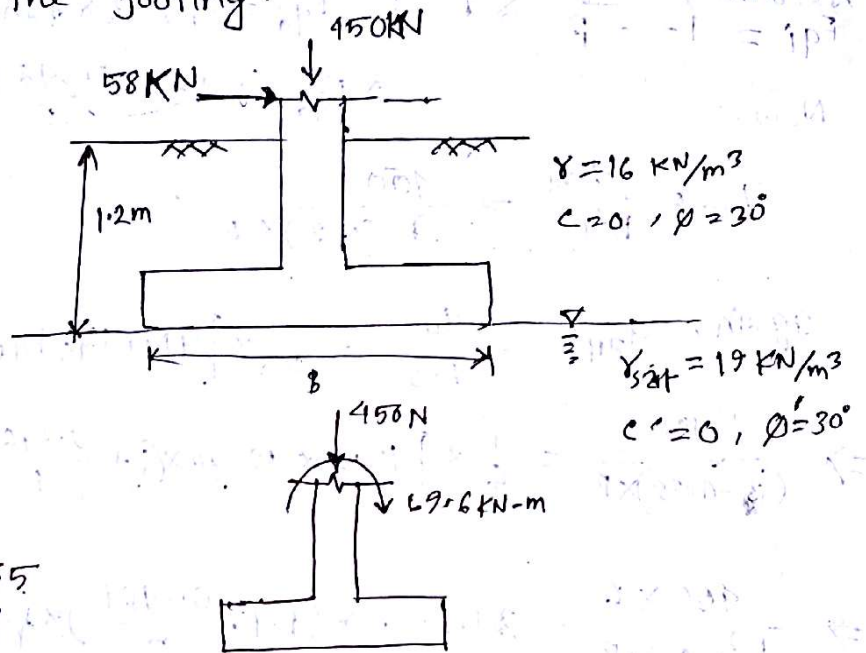 The footing
450KN
58KN
γ=16 KN/m³
1.2m
c=0, φ=30°
γsat = 19 KN/m³
B
c'=0, φ'=30°
450N
69.6 KN-m
5